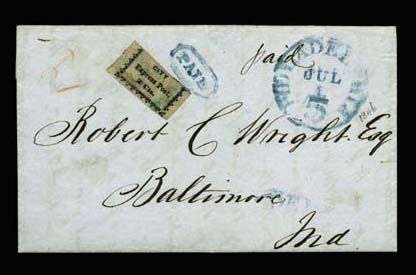 CITY
Express Post.
2 Cts.
PAID
Paid
PHILADELPHIA
JUL
1
5
Robert C Wright. Esq
Baltimore
Md